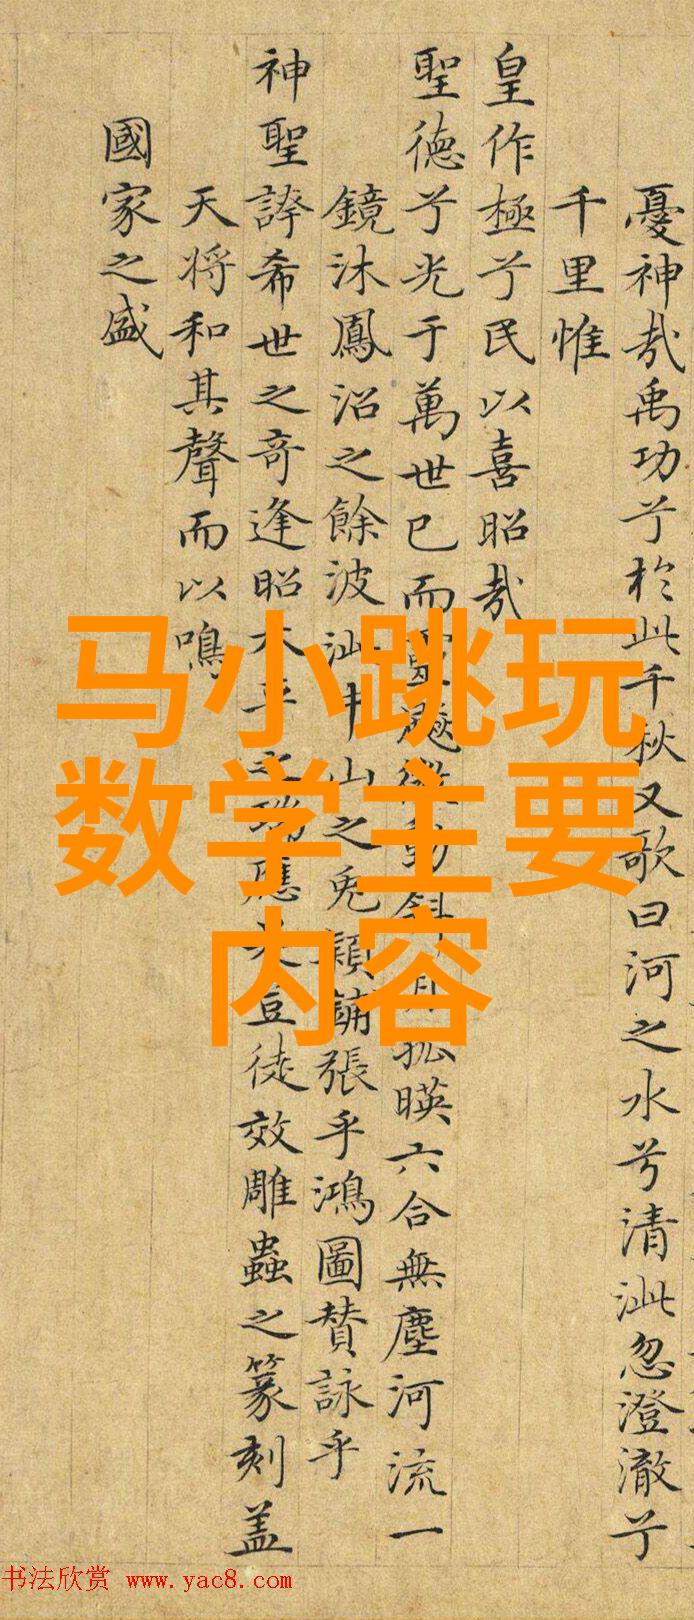 憂神哉禹功兮於此千秋又歌曰河之水兮清泚忽澄澈兮
千里惟
皇作極兮民以喜昭哉
聖德兮光于萬世已而暈孤暎六合無塵河流一
鏡沐鳳沼之餘波汕山之兔穎鋪張乎鴻圖賛詠乎
神聖誇希世之奇逢昭太平之瑞應夫豈徒效雕蟲之篆刻盖
天将和其聲而以鳴
國家之盛
马小跳玩
数学主要
内容
书法欣赏 www.yac8.com